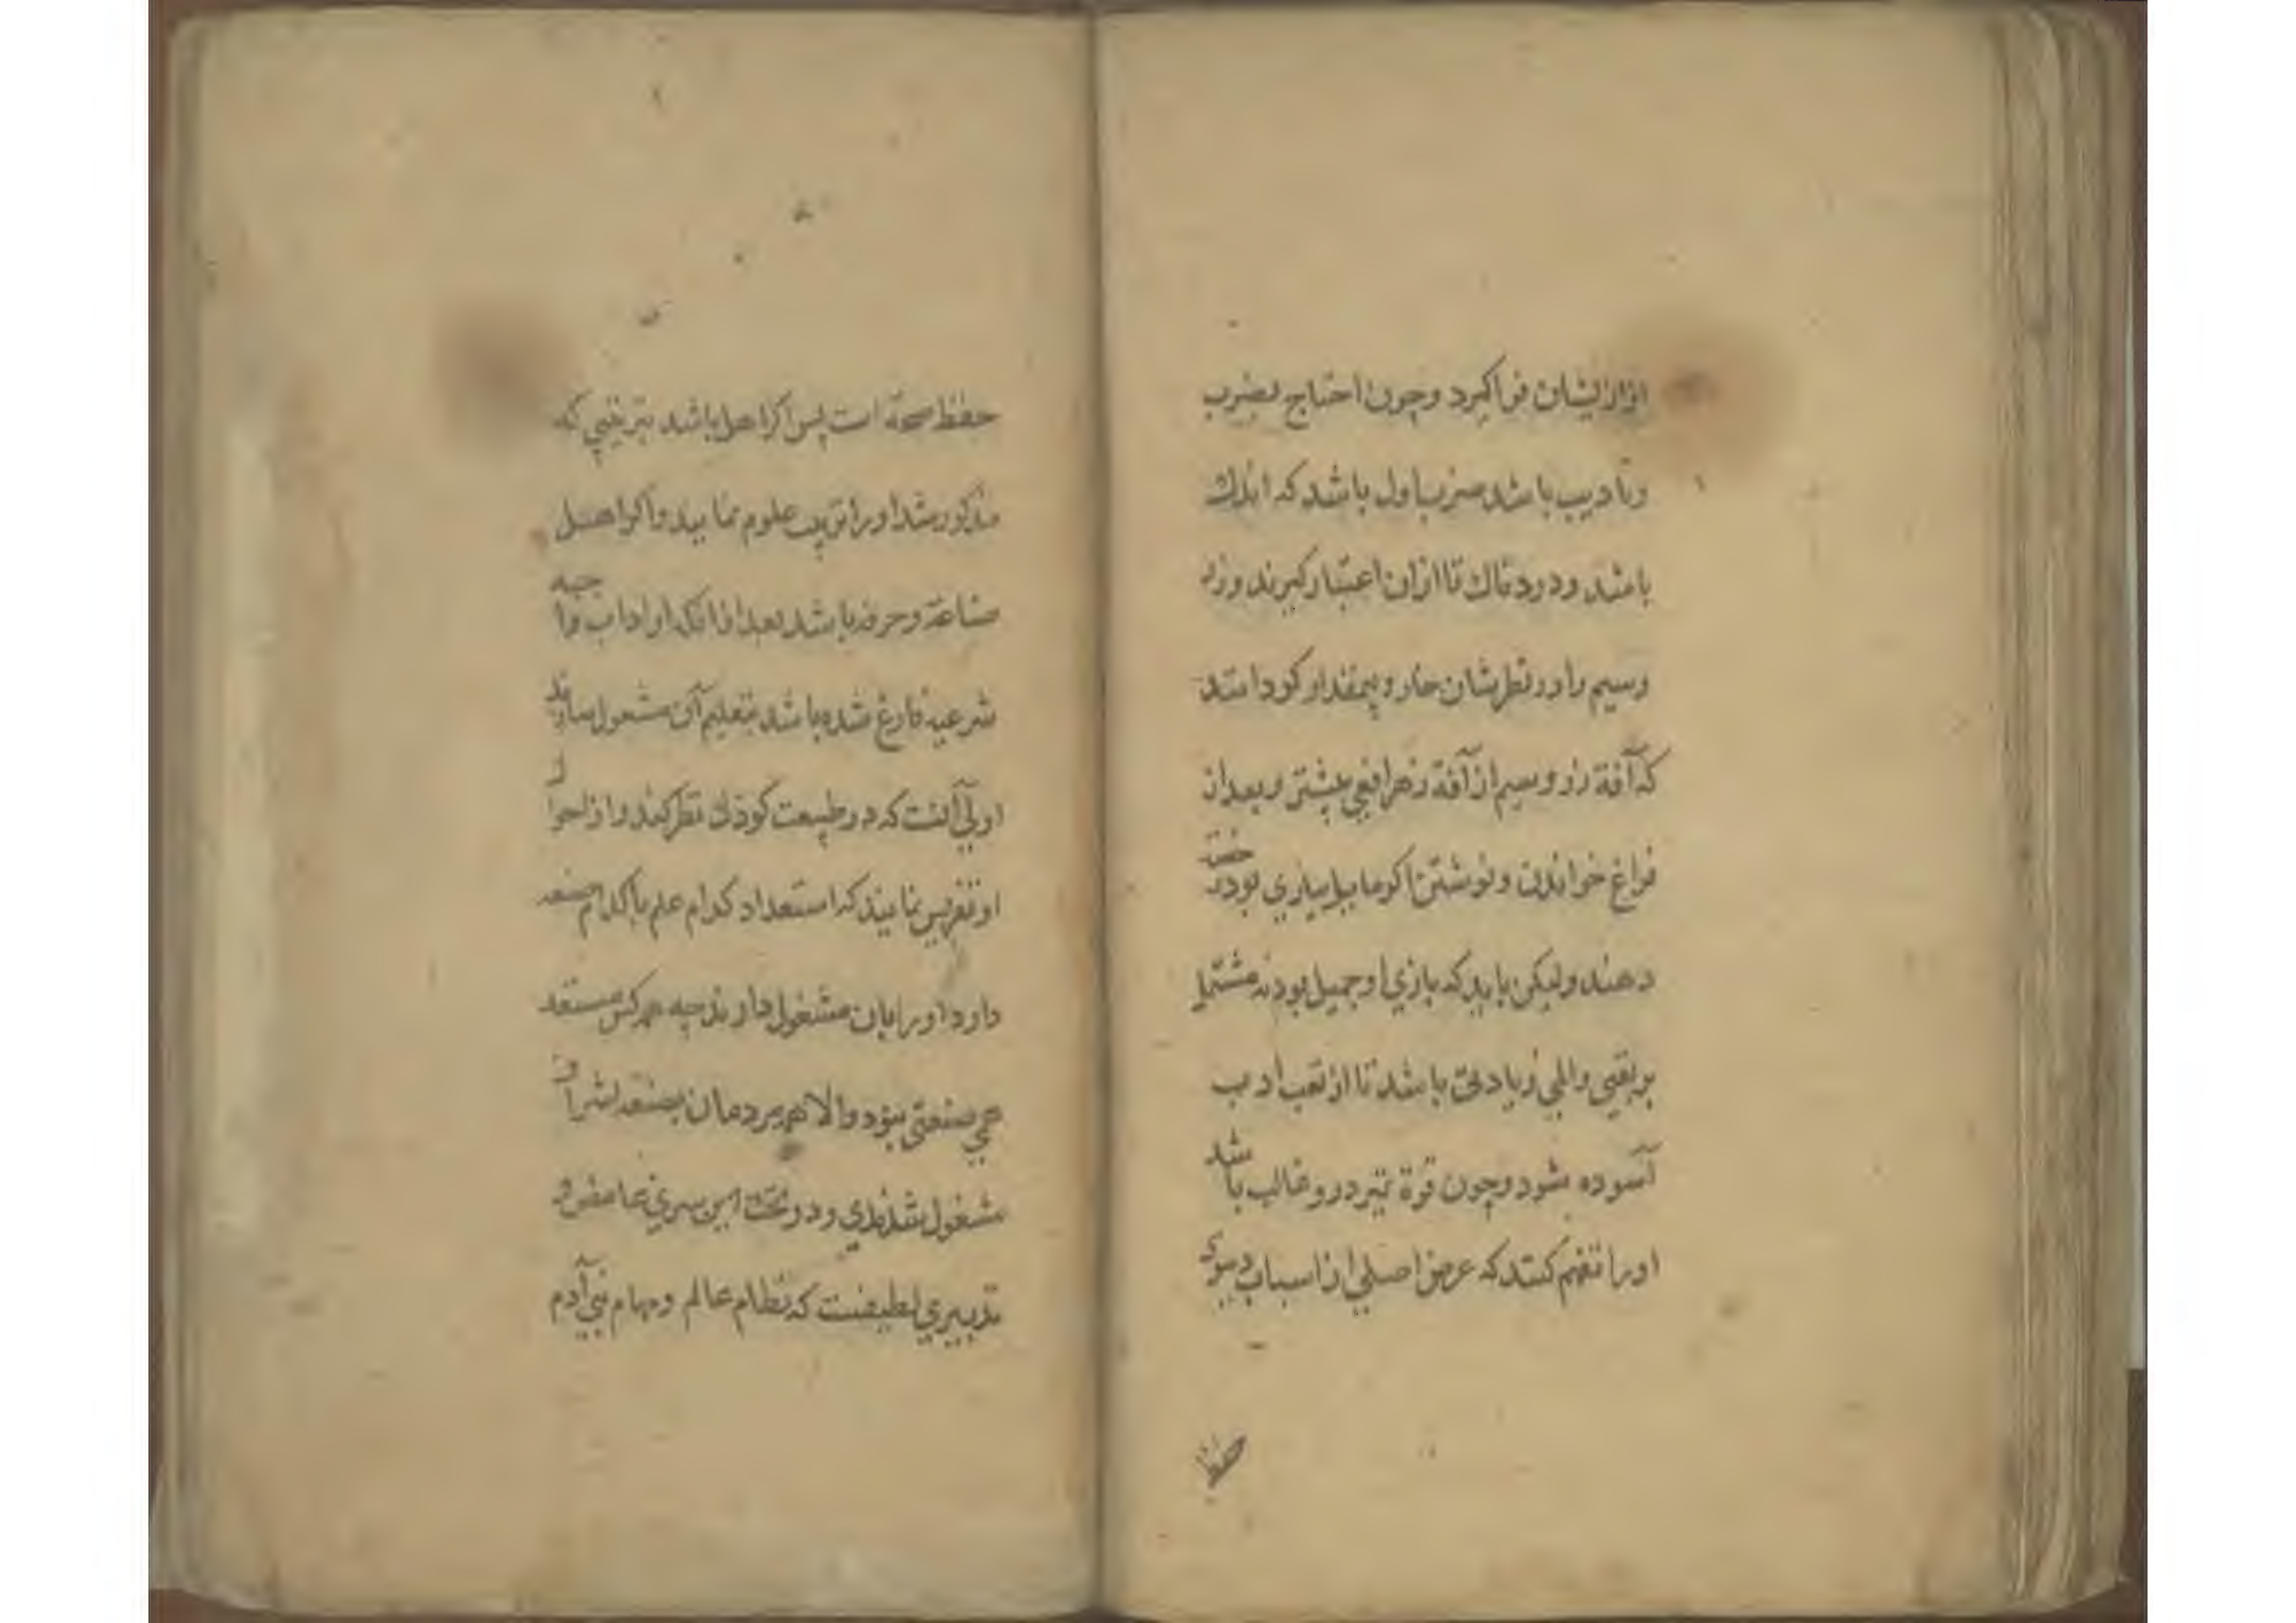 ازار ایشان فرا کیرد وچون احتیاج بضرب
وتادیب باشد ضرب اول باشد که اندك
باشد ودردناك تا ازان اعتبار کیرند وزر
وسیم را در نظرشان خار وبیمقدار کردانند
که آفة زر وسیم از آفة زهر افعی بیشتر وبعد از
فراغ خواندن ونوشتن اکر مایل ببازی بود رخصت
دهند ولیکن باید که بازی او جمیل بود نه مشتمل
بر تعبی والمی زیادتی باشد تا از تعب ادب
آسوده شود وچون قوة تمیز درو غالب باشد
اورا تفهیم کنند که غرض اصلی از اسباب دنیوی
حفظ
حفظ صحة است پس اکر اهل باشد بترتیبی که
مذکور شد اورا تربیت علوم نمایند واکر اهل
صناعة وحرفه باشد بعد از انکه از اداب واجبه
شرعیه فارغ شده باشد بتعلیم آن مشغول سازند
اولی آنست که در طبیعت کودك نظر کنند واز احوال
او تفرس نمایند که استعداد کدام علم یا کدام صنعة
دارد اورا بان مشغول دارند چه هرکس مستعد
هر صنعتی نبود والا همه مردمان بصنعة اشراف
مشغول شدندی ودر تحت این سری غامض و
تدبیری لطیفست که نظام عالم ومهام بنی آدم